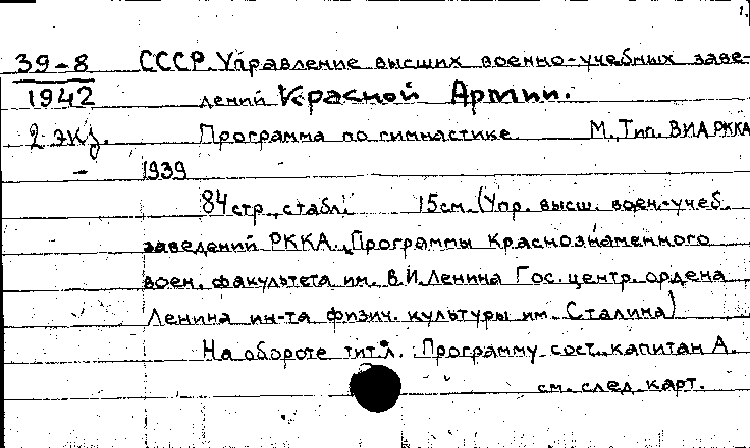 1.
39-8 СССР. Управление высших военно-учебных заве-
1942 дений Красной Армии.
2 экз. Программа по гимнастике М., Тип. ВИА РККА
- 1939
84 стр., с табл. 15 см. (Упр. высш. воен.-учеб.
заведений РККА. Программы Краснознаменного
воен. факультета им. В.И. Ленина Гос. центр. ордена
Ленина ин-та физич. культуры им. Сталина)
На обороте тит. л.: Программу сост. капитан А.
см. след. карт.